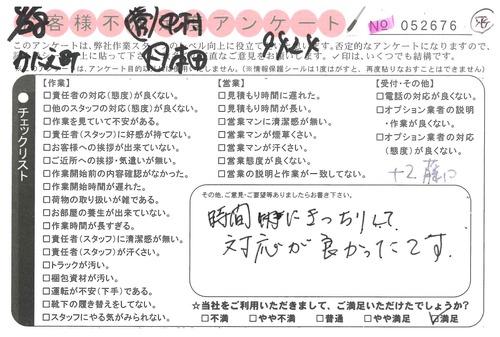 お客様不満アンケート No 052676
このアンケートは、弊社作業スタッフのレベル向上に役立て
否定的なアンケートになりますので、
✓印は、いくつでも結構です。
(※情報保護シールは1度はがすと、再度貼りなおすことはできません)
チェックリスト
【作業】
□責任者の対応(態度)が良くない。
□他のスタッフの対応(態度)が良くない。
□作業を見ていて不安がある。
□責任者(スタッフ)に好感が持てない。
□お客様への挨拶が出来ていない。
□ご近所への挨拶・気遣いが無い。
□作業開始前の内容確認がなかった。
□作業開始時間が遅れた。
□荷物の取り扱いが雑である。
□お部屋の養生が出来ていない。
□作業時間が長すぎる。
□責任者(スタッフ)に清潔感が無い。
□責任者(スタッフ)が汗くさい。
□トラックが汚い。
□梱包資材が汚い。
□運転が不安(下手)である。
□靴下の履き替えをしてない。
□スタッフにやる気がみられない。
【営業】
□見積もり時間に遅れた。
□見積もり時間が長い。
□営業マンに清潔感が無い。
□営業マンが煙草くさい。
□営業マンが汗くさい。
□営業態度が良くない。
□営業の説明と作業が一致してない。
【受付・その他】
□電話の対応が良くない。
□オプション業者の説明
・作業が良くない。
□オプション業者の対応
(態度)が良くない。
その他、ご意見・ご要望等ありましたらお書き下さい。
時間
にきっちりして
対応が良かったです。
☆当社をご利用いただきまして、ご満足いただけたでしょうか?
□不満 □やや不満 □普通 □やや満足 ☑満足